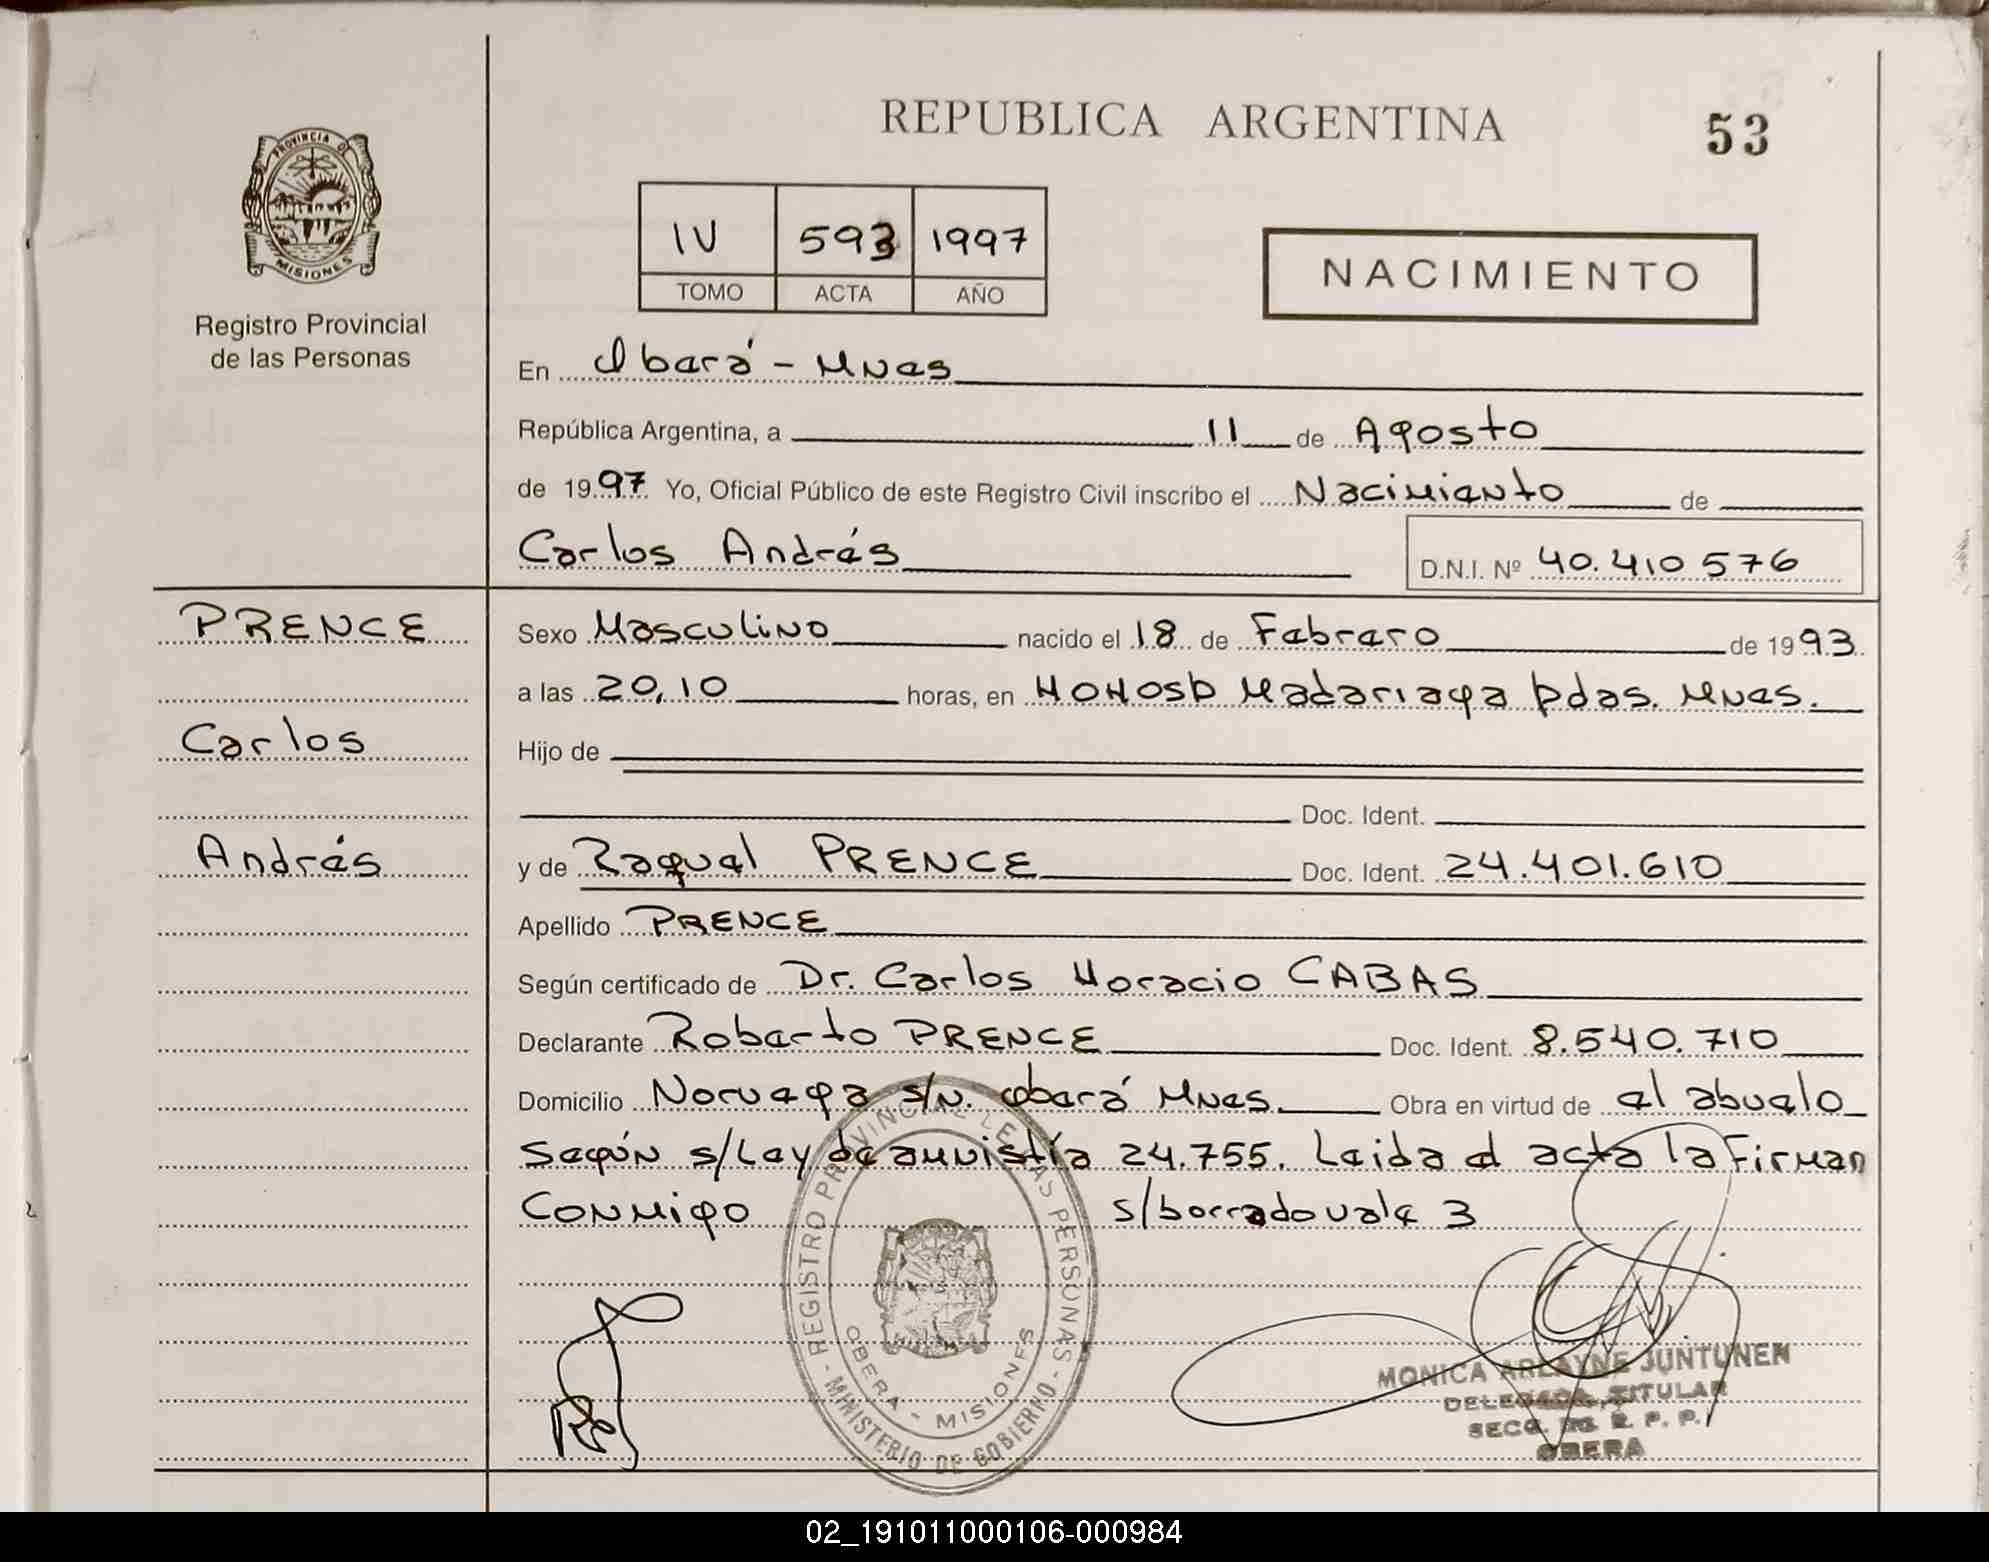 REPUBLICA ARGENTINA
53
PROVINCIA DE
MISIONES
Registro Provincial
de las Personas
IV 593 1997
TOMO ACTA AÑO
NACIMIENTO
En Oberá - Mnes
República Argentina, a 11 de Agosto
de 1997 Yo, Oficial Público de este Registro Civil inscribo el Nacimiento de
Carlos Andrés D.N.I. Nº 40.410 576
PRENCE
Carlos
Andrés
Sexo Masculino nacido el 18 de Febrero de 1993
a las 20,10 horas, en Madariaga Pdas. Mnes.
Hijo de
Doc. Ident.
y de Raquel PRENCE Doc. Ident. 24.401.610
Apellido PRENCE
Según certificado de Dr. Carlos Horacio CABAS
Declarante Roberto PRENCE Doc. Ident. 8.540.710
Domicilio Noruega s/n. Oberá Mnes. Obra en virtud de el abuelo
Según s/Ley de amnistía 24.755. Leida el acta la Firman
Conmigo s/borrado vale 3
- REGISTRO PROVINCIAL DE LAS PERSONAS -
OBERA - MISIONES
MINISTERIO DE GOBIERNO
MONICA ARLAYNE JUNTUNEN
DELEGADA TITULAR
SECC. R. P. P.
OBERA
02_191011000106-000984